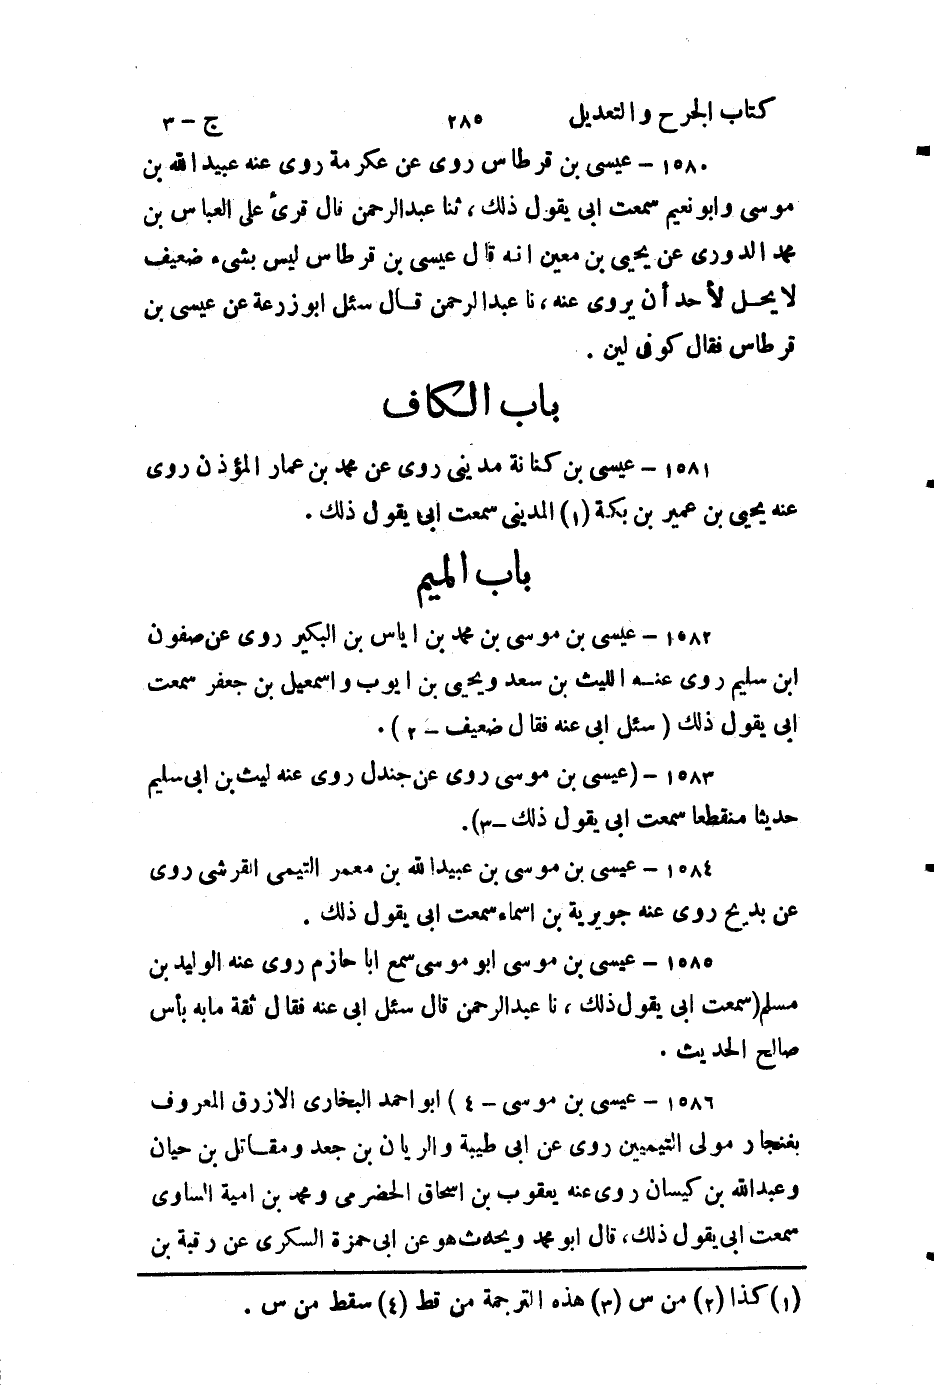 كتاب الجرح والتعديل ٢٨٥ ج - ٣
١٥٨٠ - عيسى بن قرطاس روى عن عكرمة روى عنه عبيد الله بن
موسى وابو نعيم سمعت ابى يقول ذلك، ثنا عبدالرحمن قال قرئ على العباس بن
محمد الدورى عن يحيى بن معين انه قال عيسى بن قرطاس ليس بشىء ضعيف
لا يحل لأحد أن يروى عنه، نا عبدالرحمن قال سئل ابو زرعة عن عيسى بن
قرطاس فقال كوفى لين .
باب الكاف
١٥٨١ - عيسى بن كنانة مدينى روى عن محمد بن عمار المؤذن روى
عنه يحيى بن عمير بن بكة (١) المدينى سمعت ابى يقول ذلك .
باب الميم
١٥٨٢ - عيسى بن موسى بن محمد بن اياس بن البكير روى عن صفون
ابن سليم روى عنه الليث بن سعد ويحيى بن ايوب واسمعيل بن جعفر سمعت
ابى يقول ذلك ( سئل ابى عنه فقال ضعيف - ٢ ) .
١٥٨٣ - (عيسى بن موسى روى عن جندل روى عنه ليث بن ابى سليم
حديثا منقطعا سمعت ابى يقول ذلك - ٣).
١٥٨٤ - عيسى بن موسى بن عبيدالله بن معمر التيمى القرشى روى
عن بديح روى عنه جويرية بن اسماء سمعت ابى يقول ذلك .
١٥٨٥ - عيسى بن موسى ابو موسى سمع ابا حازم روى عنه الوليد بن
مسلم (سمعت ابى يقول ذلك، نا عبدالرحمن قال سئل ابى عنه فقال ثقة مابه بأس
صالح الحديث .
١٥٨٦ - عيسى بن موسى - ٤ ) ابو احمد البخارى الازرق المعروف
بغنجار مولى التيميين روى عن ابى طيبة والريان بن جعد ومقاتل بن حيان
وعبدالله بن كيسان روى عنه يعقوب بن اسحاق الحضرمى ومحمد بن امية الساوى
سمعت ابى يقول ذلك، قال ابو محمد ويحدث هو عن ابى حمزة السكرى عن رقبة بن
(١) كذا (٢) من س (٣) هذه الترجمة من قط (٤) سقط من س .